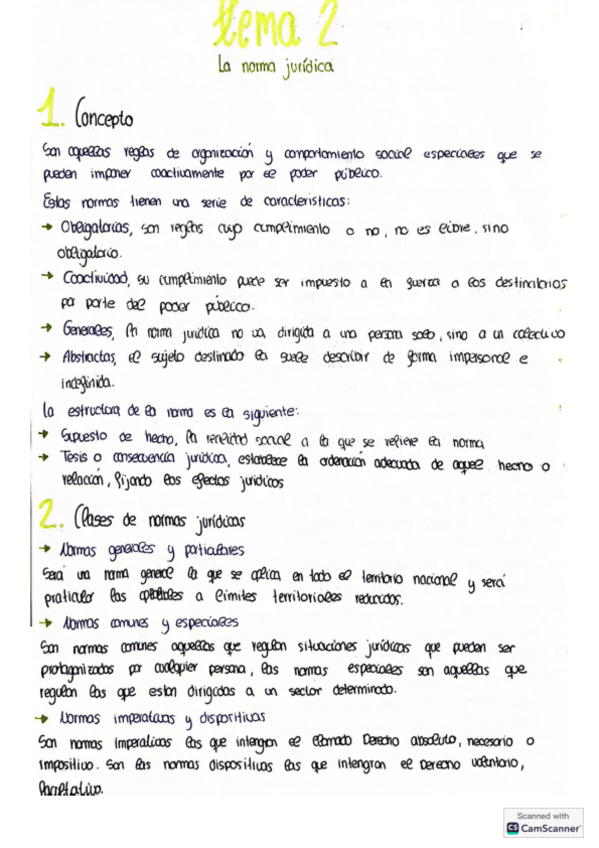 tema 2
La norma jurídica
1. Concepto
Son aquellas reglas de organización y comportamiento social especiales que se
pueden imponer coactivamente por el poder público.
Estas normas tienen una serie de características:
→ Obligatorias, son reglas cuyo cumplimiento o no, no es libre, sino
obligatorio.
→ Coactividad, su cumplimiento puede ser impuesto a la fuerza a los destinatarios
por parte del poder público.
→ Generales, la norma jurídica no va dirigida a una persona solo, sino a un colectivo
→ Abstractas, el sujeto destinado la suele describir de forma impersonal e
indefinida.
La estructura de la norma es la siguiente:
→ Supuesto de hecho, la realidad social a la que se refiere la norma
→ Tesis o consecuencia jurídica, establece la ordenación adecuada de aquel hecho o
relación, fijando los efectos jurídicos
2. Clases de normas jurídicas
→ Normas generales y particulares
Será una norma general la que se aplica en todo el territorio nacional y será
praticular las aplicables a límites territoriales reducidos.
→ Normas comunes y especiales
Son normas comunes aquellas que regulan situaciones jurídicas que pueden ser
protagonizadas por cualquier persona, las normas especiales son aquellas que
regulan las que estan dirigidas a un sector determinado.
→ Normas imperativas y dispositivas
Son normas imperativas las que integran el llamado Derecho absoluto, necesario o
impositivo. Son las normas dispositivas las que integran el Derecho voluntario,
facultativo.
Scanned with
CS CamScanner